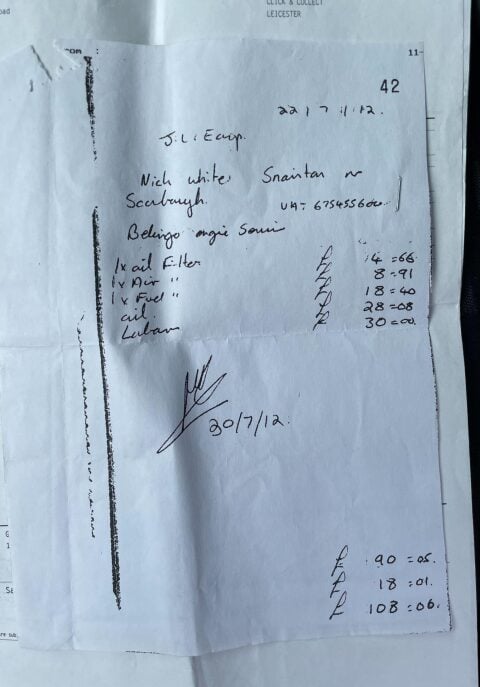 CLICK & COLLECT
LEICESTER
11-
42
22/7/12.
J.L.
Nick White Snainton nr
Scarbrugh. VAT 675455600
Belingo engie Servi
1x oil Filter £ 4=66
1x Air " £ 8=91
1x Fuel " £ 18=40
oil. £ 28=08
Labour £ 30=00
30/7/12.
£ 90=05.
£ 18=01.
£ 108=06.